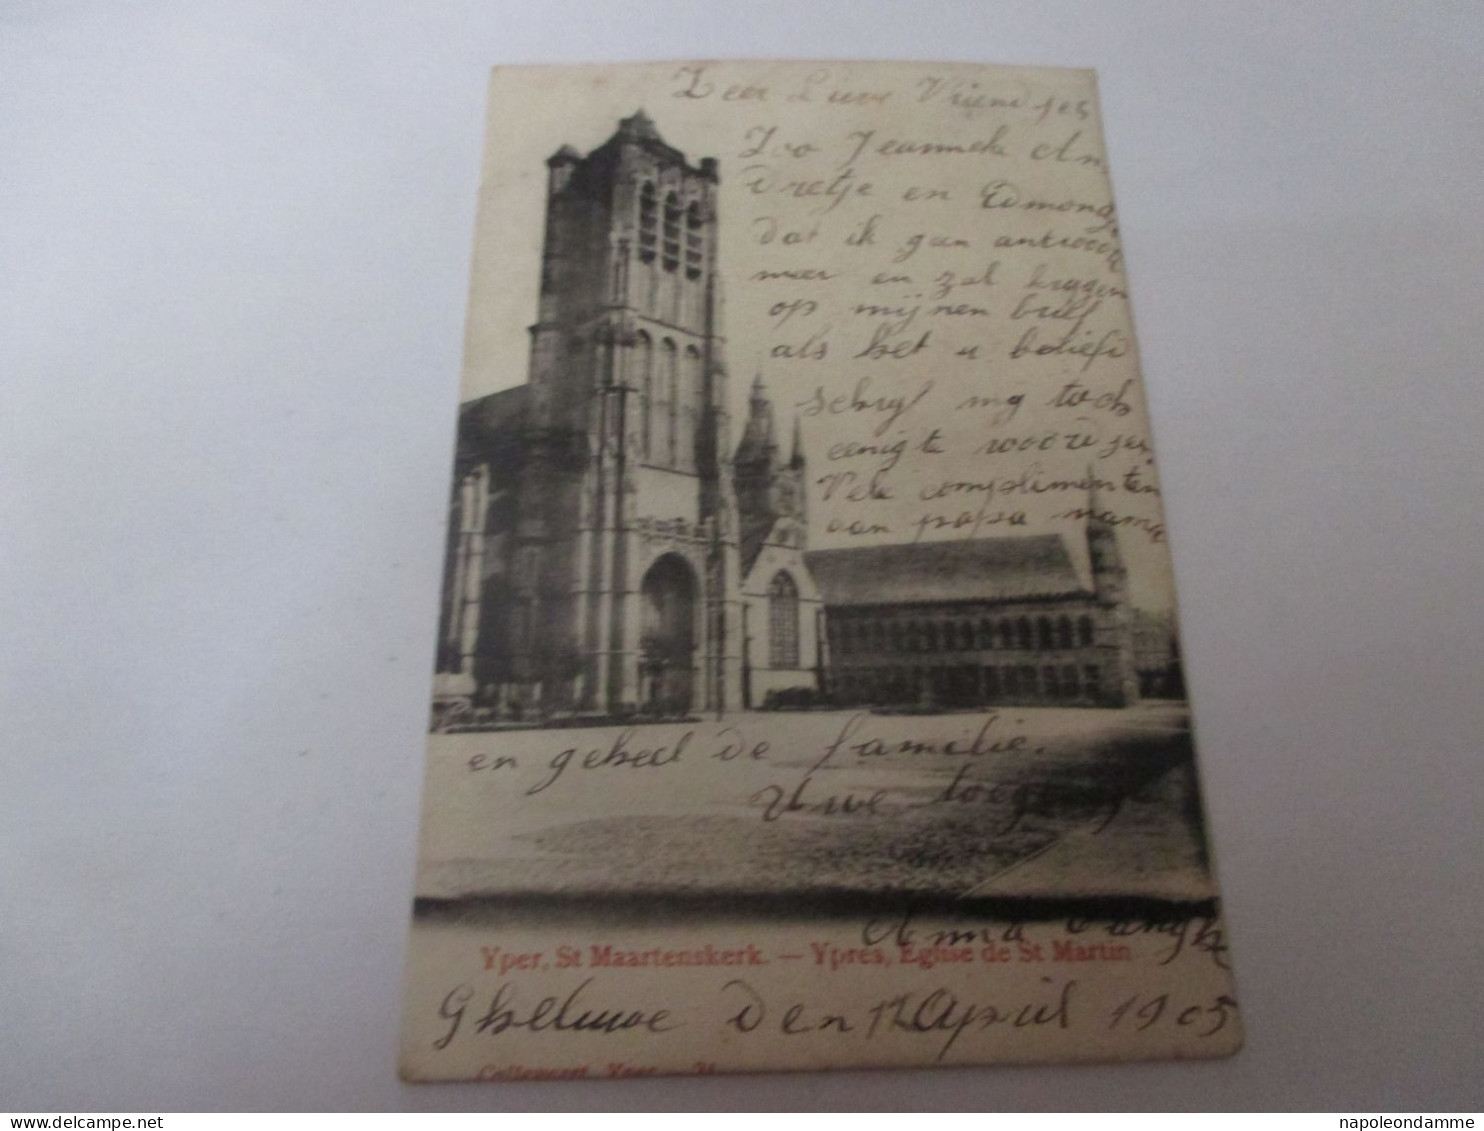 Zeer Lieve Vriendjes
Zoo Jeannek An
dretje en Edmond
dat ik gan antwoord
meer en zal krygen
op mijnen brief
als het u belieft
schryf my toch
eenigte woordjes
Vele complimenten
aan papa mama
en geheel de familie.
Uwe toegenege
Anna
Yper, St Maartenskerk. — Ypres, Eglise de St Martin
Gheluwe den 12 April 1905
Callewaert, Yper
delcampe.net
napoleondamme